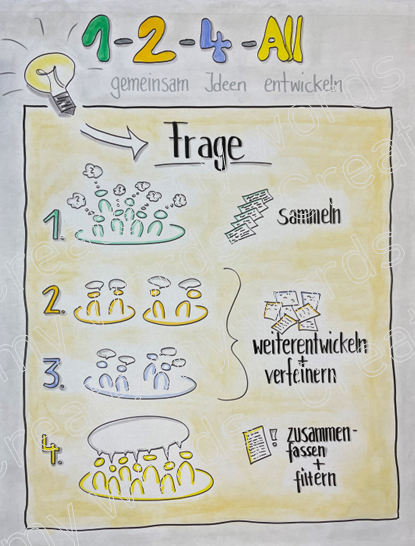 1-2-4-All
gemeinsam Ideen entwickeln
Frage
1.
sammeln
2.
weiterentwickeln
+
verfeinern
3.
4.
!
zusammen-
fassen
+
filtern